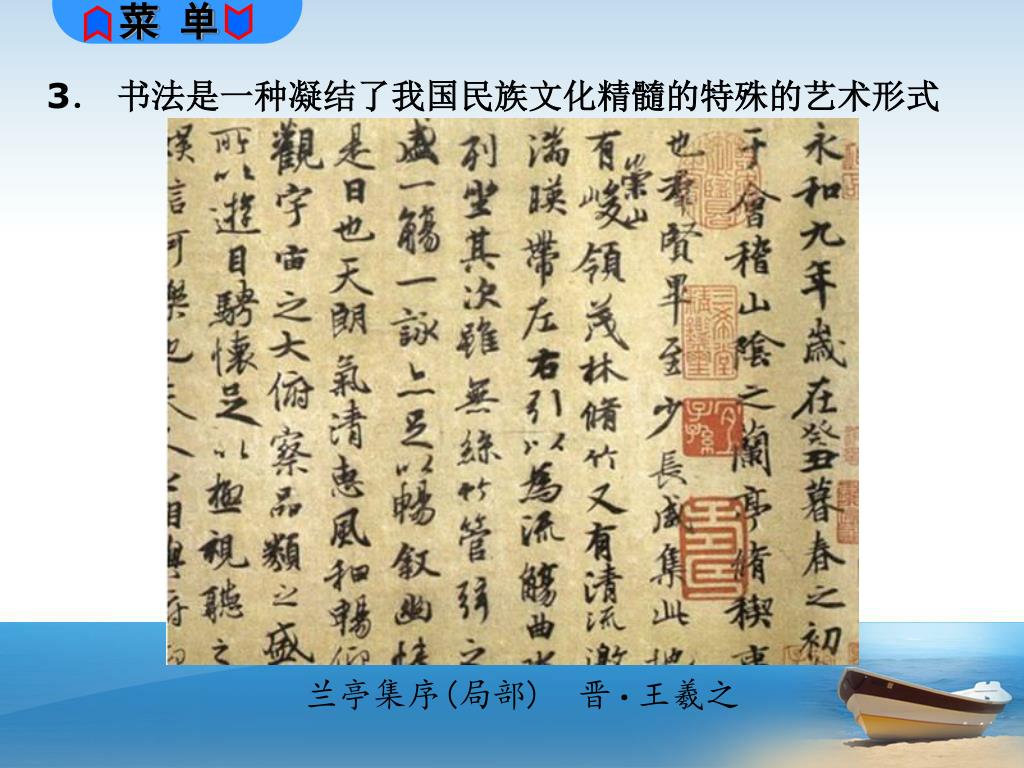 菜 单
3. 书法是一种凝结了我国民族文化精髓的特殊的艺术形式
永和九年歲在癸丑暮春之初
于會稽山陰之蘭亭脩稧事
也羣賢畢至少長咸集此地
有崇山峻領茂林脩竹又有清流激
湍暎帶左右引以為流觴曲水
列坐其次雖無絲竹管弦之
盛一觴一詠亦足以暢敘幽情
是日也天朗氣清惠風和暢仰
觀宇宙之大俯察品類之盛
所以遊目騁懷足以極視聽之
娛信可樂也夫人之相與俯仰
兰亭集序(局部) 晋·王羲之